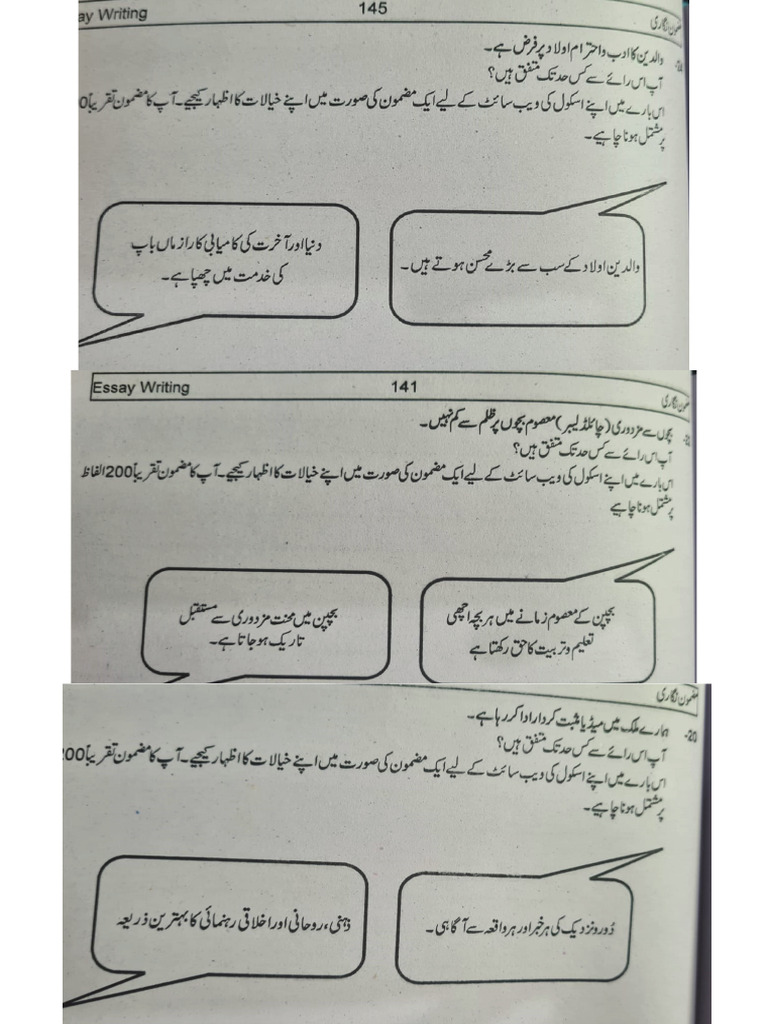 ay Writing
145
مضمون نگاری
والدین کا ادب و احترام اولاد پر فرض ہے۔
آپ اس رائے سے کس حد تک متفق ہیں؟
اس بارے میں اپنے اسکول کی ویب سائٹ کے لیے ایک مضمون کی صورت میں اپنے خیالات کا اظہار کیجیے۔ آپ کا مضمون تقریباً 0
پر مشتمل ہونا چاہیے۔
والدین اولاد کے سب سے بڑے محسن ہوتے ہیں۔
دنیا اور آخرت کی کامیابی کا راز ماں باپ
کی خدمت میں چھپا ہے۔
Essay Writing
141
مضمون نگاری
بچوں سے مزدوری (چائلڈ لیبر) معصوم بچوں پر ظلم سے کم نہیں۔
آپ اس رائے سے کس حد تک متفق ہیں؟
اس بارے میں اپنے اسکول کی ویب سائٹ کے لیے ایک مضمون کی صورت میں اپنے خیالات کا اظہار کیجیے۔ آپ کا مضمون تقریباً 200 الفاظ
پر مشتمل ہونا چاہیے
بچپن کے معصوم زمانے میں ہر بچہ اچھی
تعلیم و تربیت کا حق رکھتا ہے
بچپن میں محنت مزدوری سے مستقبل
تاریک ہو جاتا ہے۔
مضمون نگاری
20- ہمارے ملک میں میڈیا مثبت کردار ادا کر رہا ہے۔
آپ اس رائے سے کس حد تک متفق ہیں؟
اس بارے میں اپنے اسکول کی ویب سائٹ کے لیے ایک مضمون کی صورت میں اپنے خیالات کا اظہار کیجیے۔ آپ کا مضمون تقریباً 00
پر مشتمل ہونا چاہیے۔
دُور و نزدیک کی ہر خبر اور ہر واقعہ سے آگاہی۔
ذہنی، روحانی اور اخلاقی رہنمائی کا بہترین ذریعہ